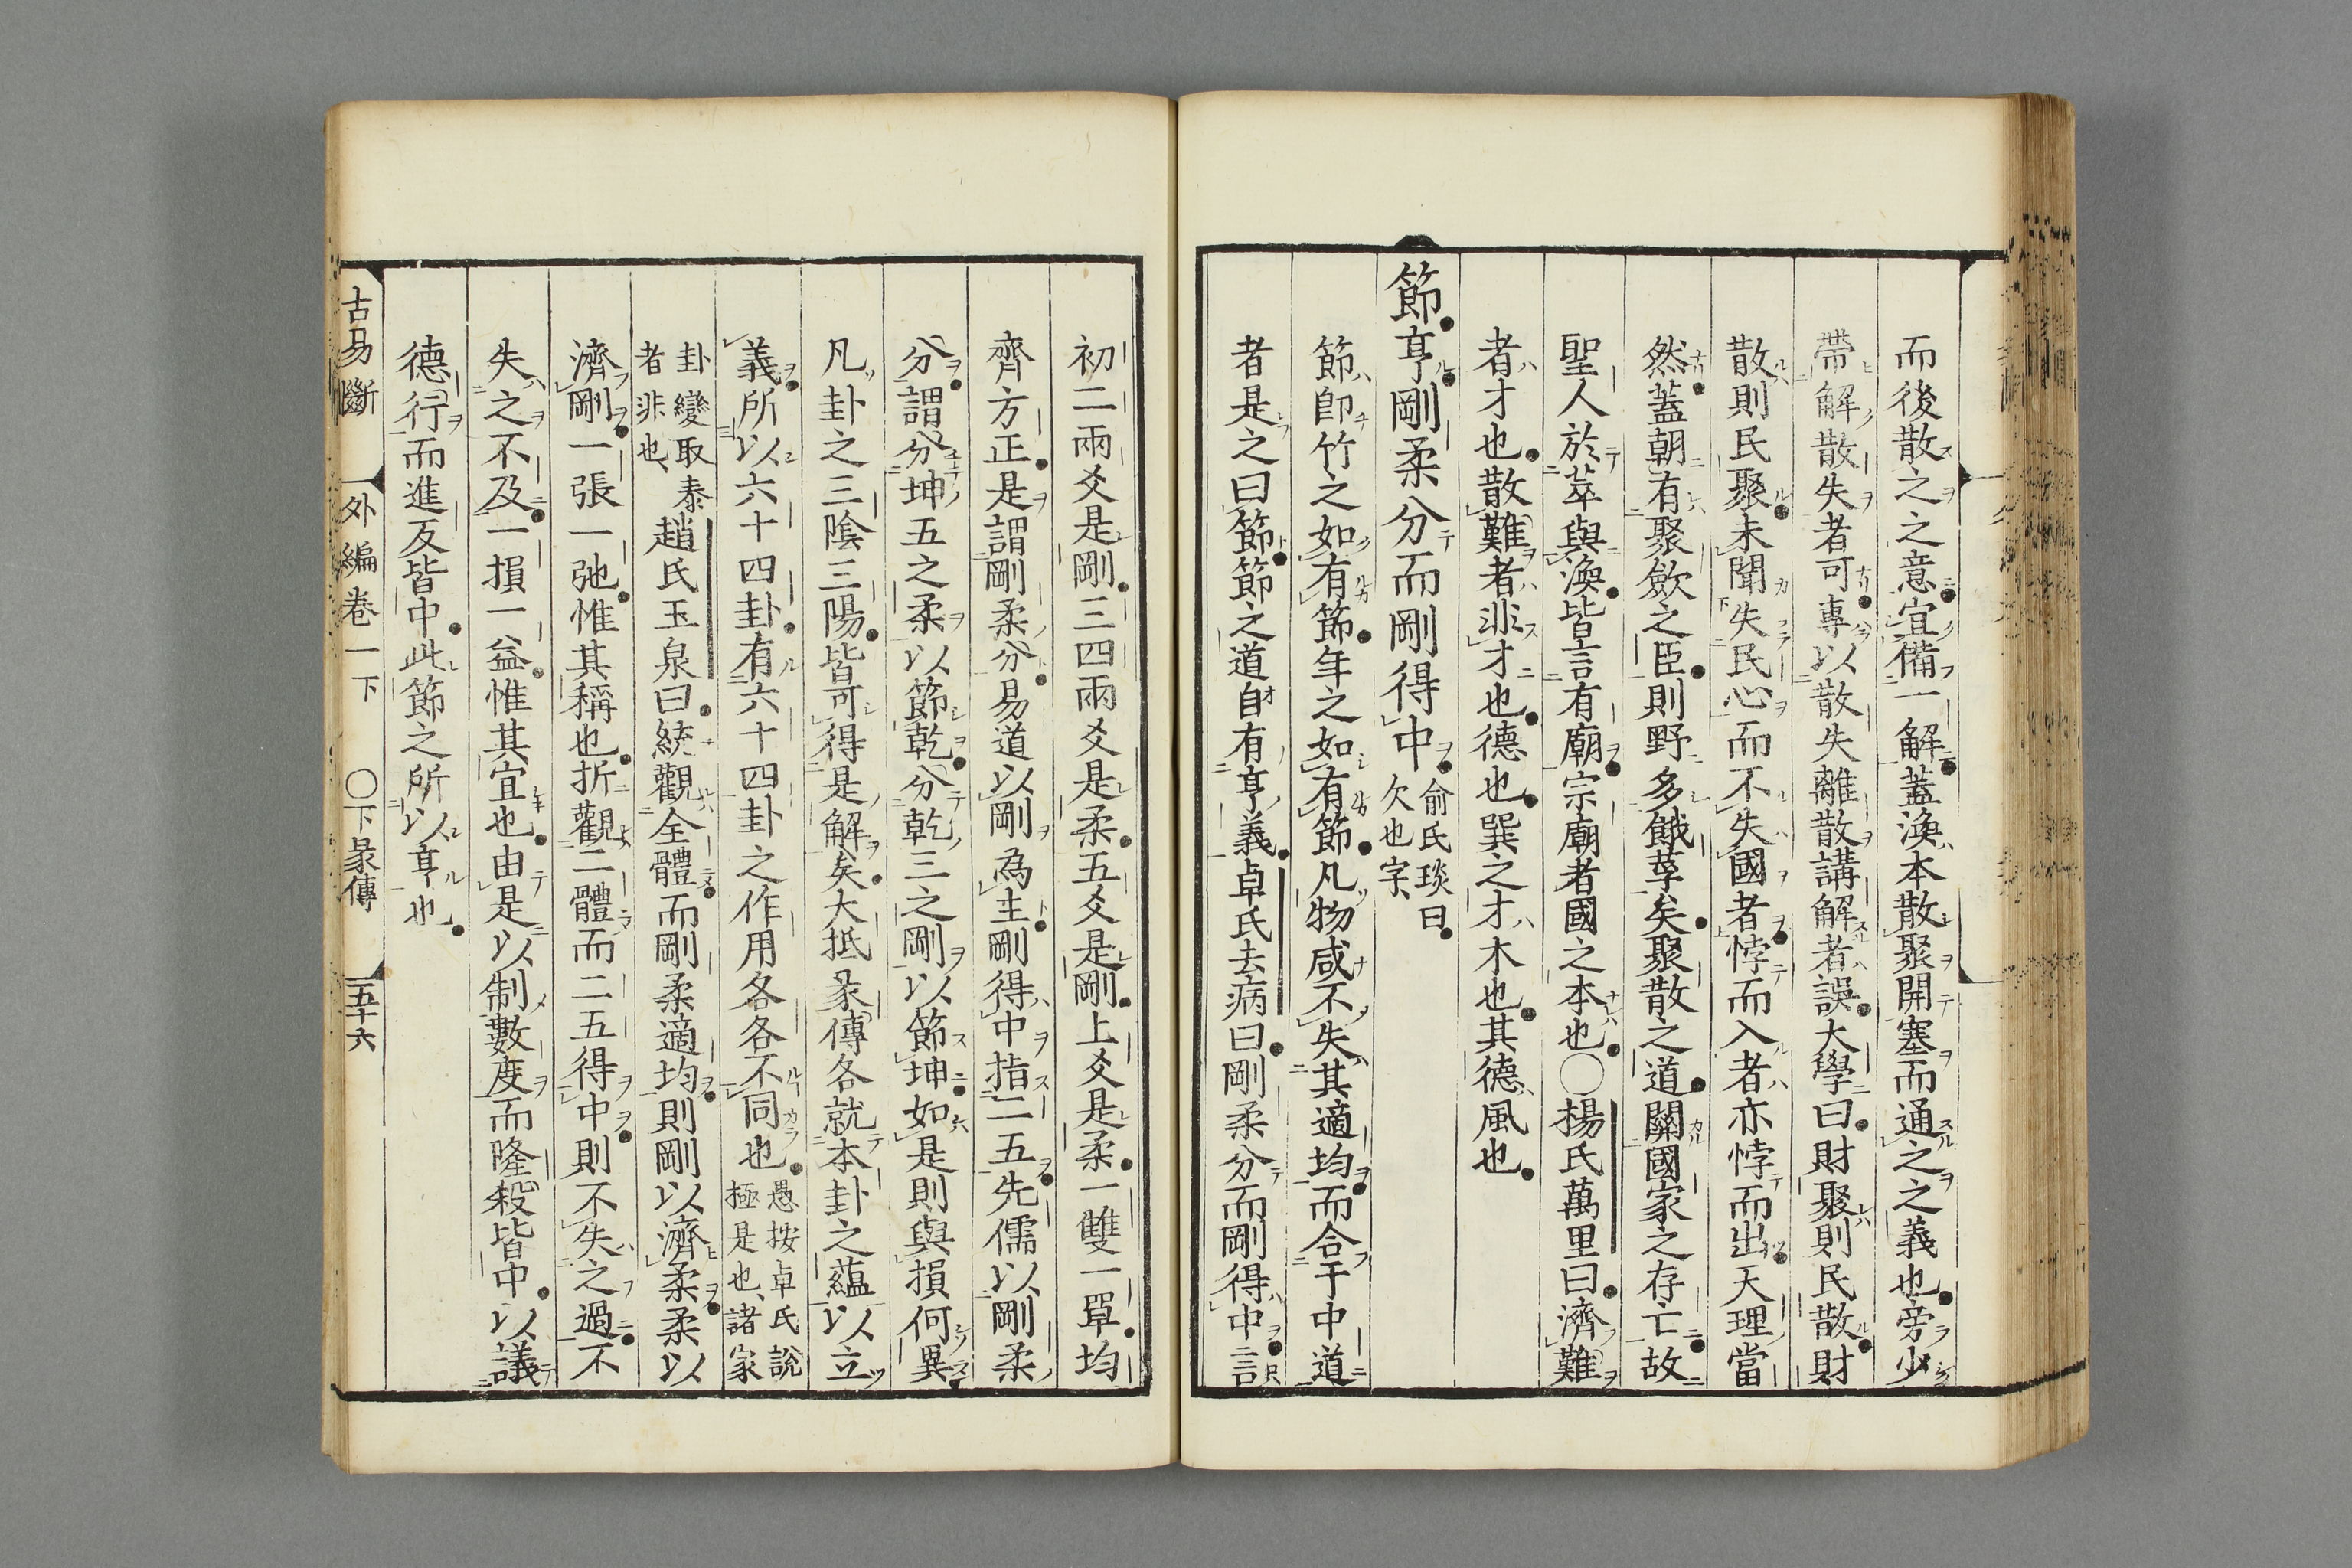 而後散之之意宜備一解蓋渙本散聚開塞而通之之義也旁少
帶解散失者可專以散失離散講解者誤大學曰財聚則民散財
散則民聚未聞失民心而不失國者悖而入者亦悖而出天理當
然蓋朝有聚斂之臣則野多餓莩矣聚散之道關國家之存亡故
聖人於萃與渙皆言有廟宗廟者國之本也○楊氏萬里曰濟難
者才也散難者非才也德也巽之才木也其德風也
節亨剛柔分而剛得中俞氏琰曰欠也字
節即竹之如有節年之如有節凡物咸不失其適均而合于中道
者是之曰節節之道自有亨義卓氏去病曰剛柔分而剛得中言
初二兩爻是剛三四兩爻是柔五爻是剛上爻是柔一雙一單均
齊方正是謂剛柔分易道以剛為主剛得中指二五先儒以剛柔
分謂分坤五之柔以節乾分乾三之剛以節坤如是則與損何異
凡卦之三陰三陽皆可得是解矣大抵彖傳各就本卦之蘊以立
義所以六十四卦有六十四卦之作用各各不同也愚按卓氏說極是也諸家
卦變取泰者非也趙氏玉泉曰統觀全體而剛柔適均則剛以濟柔柔以
濟剛一張一弛惟其稱也折觀二體而二五得中則不失之過不
失之不及一損一益惟其宜也由是以制數度而隆殺皆中以議
德行而進反皆中此節之所以亨也
古易斷 外編卷一下 ○下彖傳 五十六